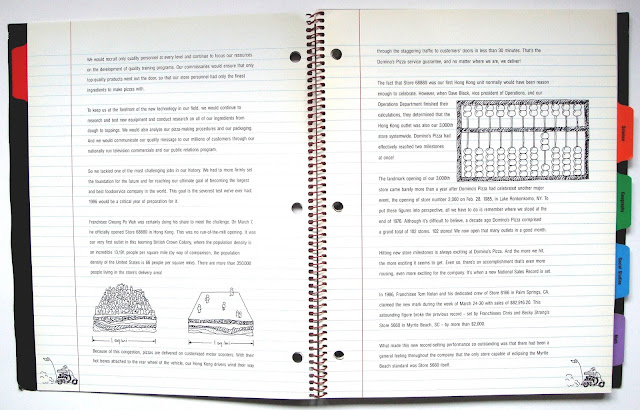 We would recruit only quality personnel at every level and continue to focus our resources
on the development of quality training programs. Our commissaries would ensure that only
top-quality products went out the door, so that our store personnel had only the finest
ingredients to make pizzas with.
To keep us at the forefront of the new technology in our field, we would continue to
research and test new equipment and conduct research on all of our ingredients from
dough to toppings. We would also analyze our pizza-making procedures and our packaging.
And we would communicate our quality message to our millions of customers through our
nationally run television commercials and our public relations program.
So we tackled one of the most challenging jobs in our history. We had to more firmly set
the foundation for the future and for reaching our ultimate goal of becoming the largest
and best foodservice company in the world. This goal is the severest test we've ever had.
1986 would be a critical year of preparation for it.
Franchisee Cheung Po Wah was certainly doing his share to meet the challenge. On March 1,
he officially opened Store 68880 in Hong Kong. This was no run-of-the-mill opening. It was
our very first outlet in this booming British Crown Colony, where the population density is
an incredible 13,191 people per square mile (by way of comparison, the population
density of the United States is 68 people per square mile). There are more than 250,000
people living in the store's delivery area!
1 sq/mi
1 sq/mi
Because of this congestion, pizzas are delivered on customized motor scooters. With their
hot boxes attached to the rear wheel of the vehicle, our Hong Kong drivers wind their way
through the staggering traffic to customers' doors in less than 30 minutes. That's the
Domino's Pizza service guarantee, and no matter where we are, we deliver!
The fact that Store 68880 was our first Hong Kong unit normally would have been reason
enough to celebrate. However, when Dave Black, vice president of Operations, and our
Operations Department finished their
calculations, they determined that the
Hong Kong outlet was also our 3,000th
store systemwide. Domino's Pizza had
effectively reached two milestones
at once!
The landmark opening of our 3,000th
store came barely more than a year after Domino's Pizza had celebrated another major
event, the opening of store number 2,000 on Feb. 28, 1985, in Lake Ronkonkoma, NY. To
put those figures into perspective, all we have to do is remember where we stood at the
end of 1976. Although it's difficult to believe, a decade ago Domino's Pizza comprised
a grand total of 102 stores. 102 stores! We now open that many outlets in a good month.
Hitting new store milestones is always exciting at Domino's Pizza. And the more we hit,
the more exciting it seems to get. Even so, there's an accomplishment that's even more
rousing, even more exciting for the company. It's when a new National Sales Record is set.
In 1986, Franchisee Tom Nolan and his dedicated crew of Store 8166 in Palm Springs, CA,
claimed the new mark during the week of March 24-30 with sales of
This
astounding figure broke the previous record - set by Franchisees Chris and Becky Strang's
Store 5660 in Myrtle Beach, SC - by more than $2,000.
What made this new record-setting performance so outstanding was that there had been a
general feeling throughout the company that the only store capable of eclipsing the Myrtle
Beach standard was Store 5660 itself.